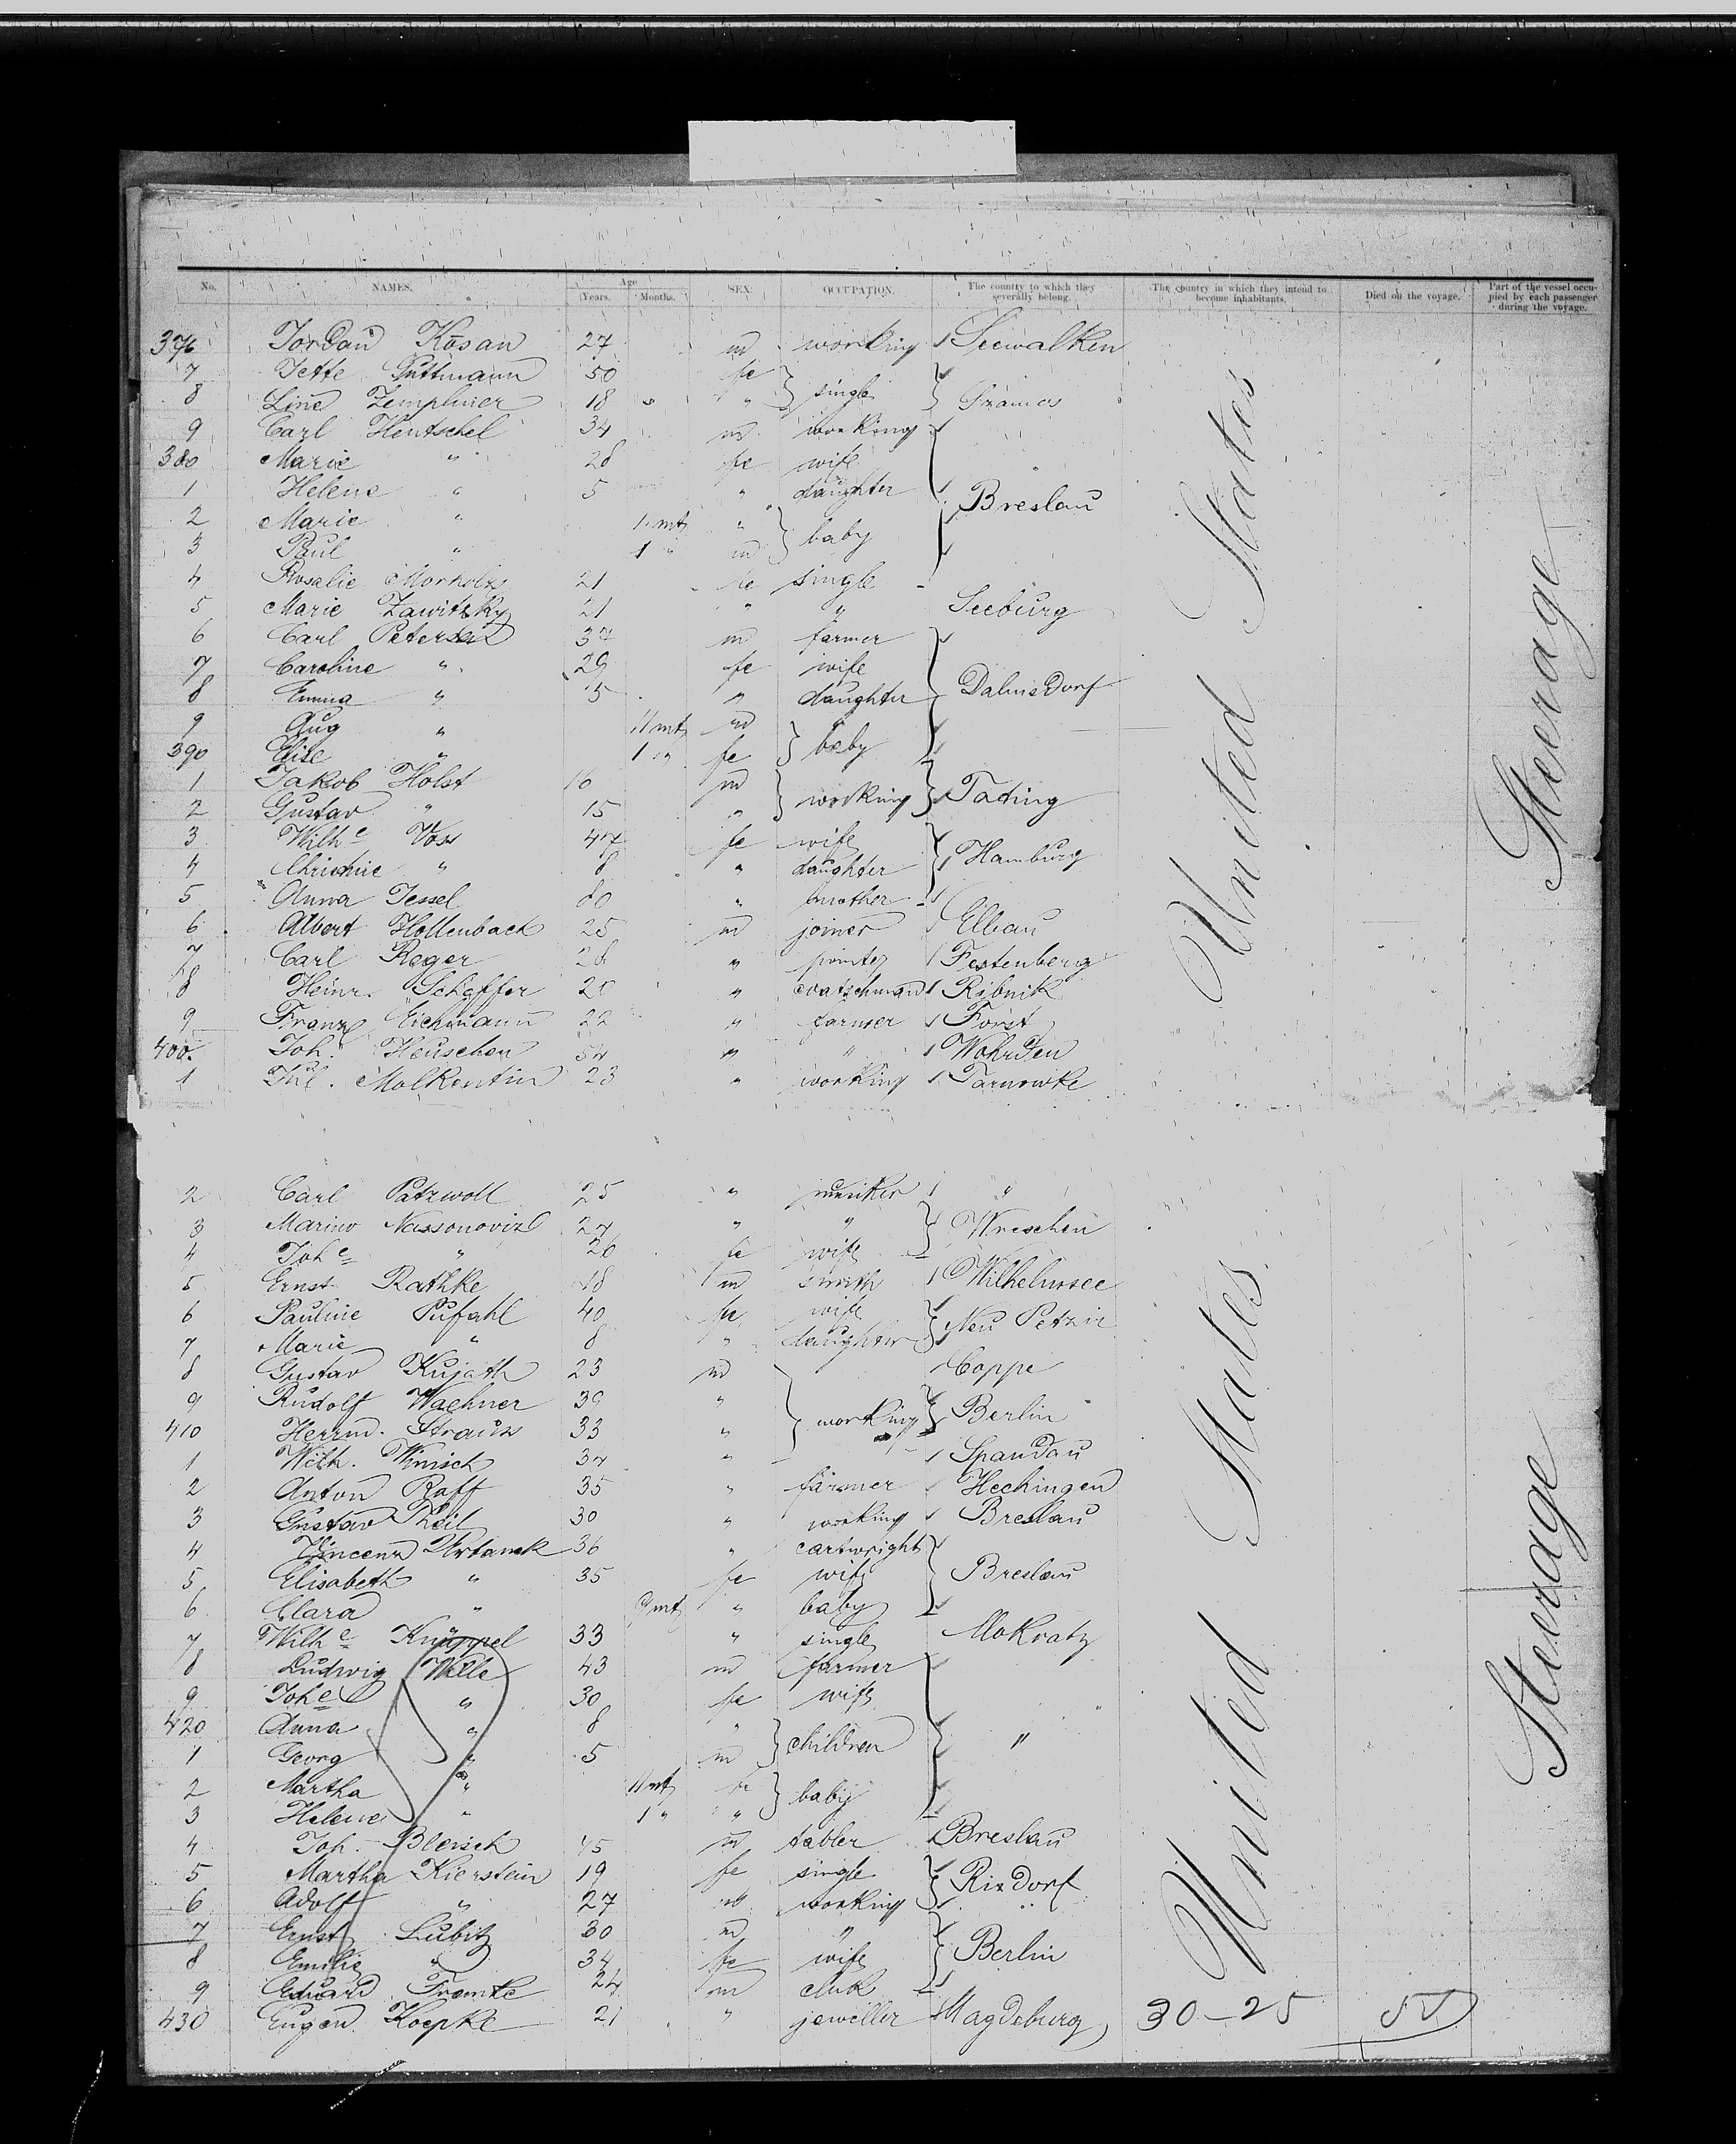 No. NAMES. Age Years. Months. SEX. OCCUPATION. The country to which they severally belong. The country in which they intend to become inhabitants. Died on the voyage. Part of the vessel occupied by each passenger during the voyage.
376 Jordan Kosan 27 m working Seewalken
7 Jette Guttmann 50 fe single
8 Line Zempliner 18 "
9 Carl Hentschel 34 m working
380 Marie " 28 fe wife
1 Helene " 5 " daughter Breslau
2 Marie " 1 mt " baby
3 Paul " 1 " m
4 Rosalie 21 fe single
5 Marie Zawitzky 21 " " Seeburg
6 Carl Petersen 37 m farmer
7 Caroline " 29 fe wife
8 Emma " 5 " daughter Dalmsdorf
9 Aug " 11 mt m baby
390 Elise " 1 " fe
1 Jakob Holst 16 m working Tating
2 Gustav " 15 "
3 Wilhe Voss 47 fe wife Hamburg
4 " 8 " daughter
5 Anna Jessel 80 " mother
6 Albert Hollenback 25 m joiner
7 Carl Reger 28 " Festenberg
8 Heinr. Scheffer " coatschman Ribnik
9 Franz Eichmann 22 " farmer Forst
400. Joh. Heuschen 54 " " Wohrden
1 Jul. Molkentin 23 " working Tarnowke
2 Carl Patzwoll 25 " musiker "
3 Marino 27 " " Wreschen
4 Johe " 26 fe wife
5 Ernst Rathke 18 m smith Wilhelmsee
6 Pauline Pufahl 40 fe wife Neu Petzin
7 Marie " 8 " daughter
8 Gustav Kujath 23 m Coppe
9 Rudolf Waehner 39 " working Berlin
410 Herrm. Strauss 33 "
1 Wilh. 34 " Spandau
2 Anton Raff 35 " farmer Hechingen
3 Gustav Theil 30 " working Breslau
4 Vincenz Urbanek 36 " cartwright
5 Elisabeth " 35 fe wife Breslau
6 Clara " 9 mt " baby
7 Wilhe Knüppel 33 " single Mokratz
8 Ludwig Wille 43 m farmer
9 Johe " 30 fe wife
420 Anna " 8 " children "
1 Georg " 5 m
2 Martha " 11 mt fe baby
3 Helene " 1 " "
4 Joh. Blersch 45 m tabler Breslau
5 Martha Kierstein 19 fe single Rixdorf
6 Adolf " 27 m working
7 Ernst Lubitz 30 m " Berlin
8 Emilie " 34 fe wife
9 Eduard Fromke 24 m clerk
430 Eugen Koepke 21 " jeweller Magdeburg 30-25
United States
Steerage
United States
Steerage